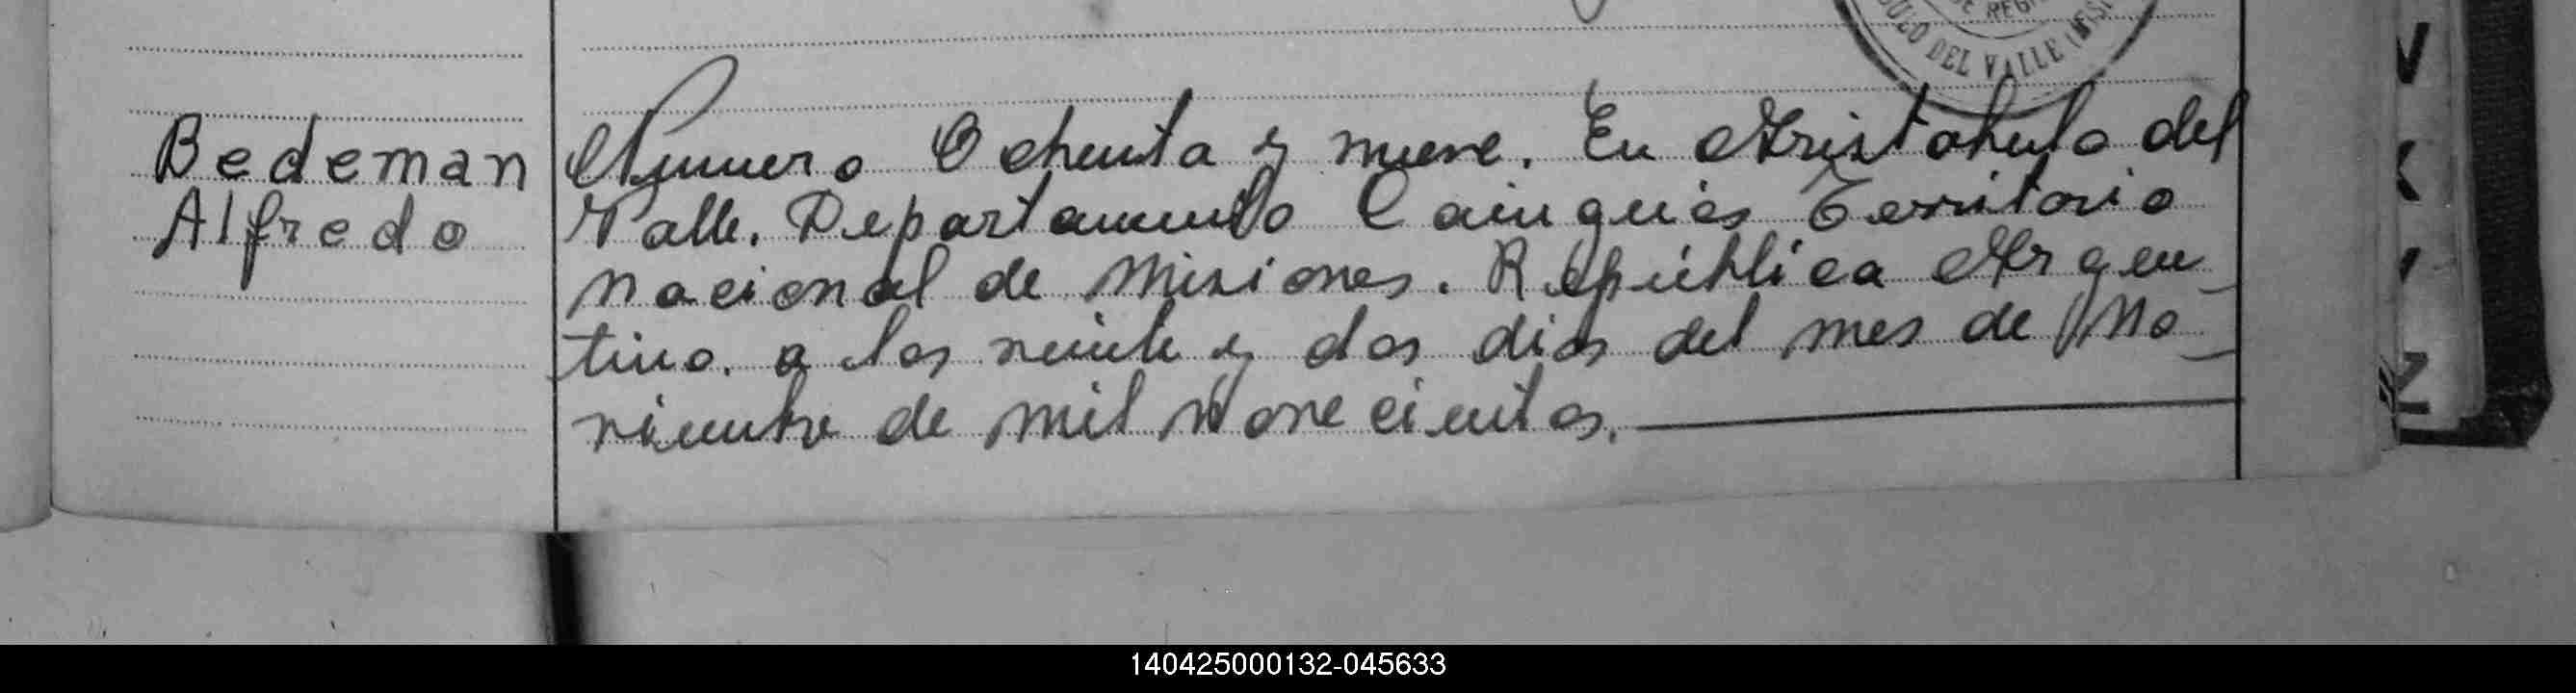 DE REGI
ULO DEL VALLE (MISI
Bedeman
Alfredo
Numero Ochenta y nueve. En Aristobulo del
Valle. Departamento Cainguás Territorio
nacional de Misiones. República Argen_
tina. a los veinte y dos dias del mes de No_
viembre de mil Novecientos.
V
X
Y
Z
140425000132-045633